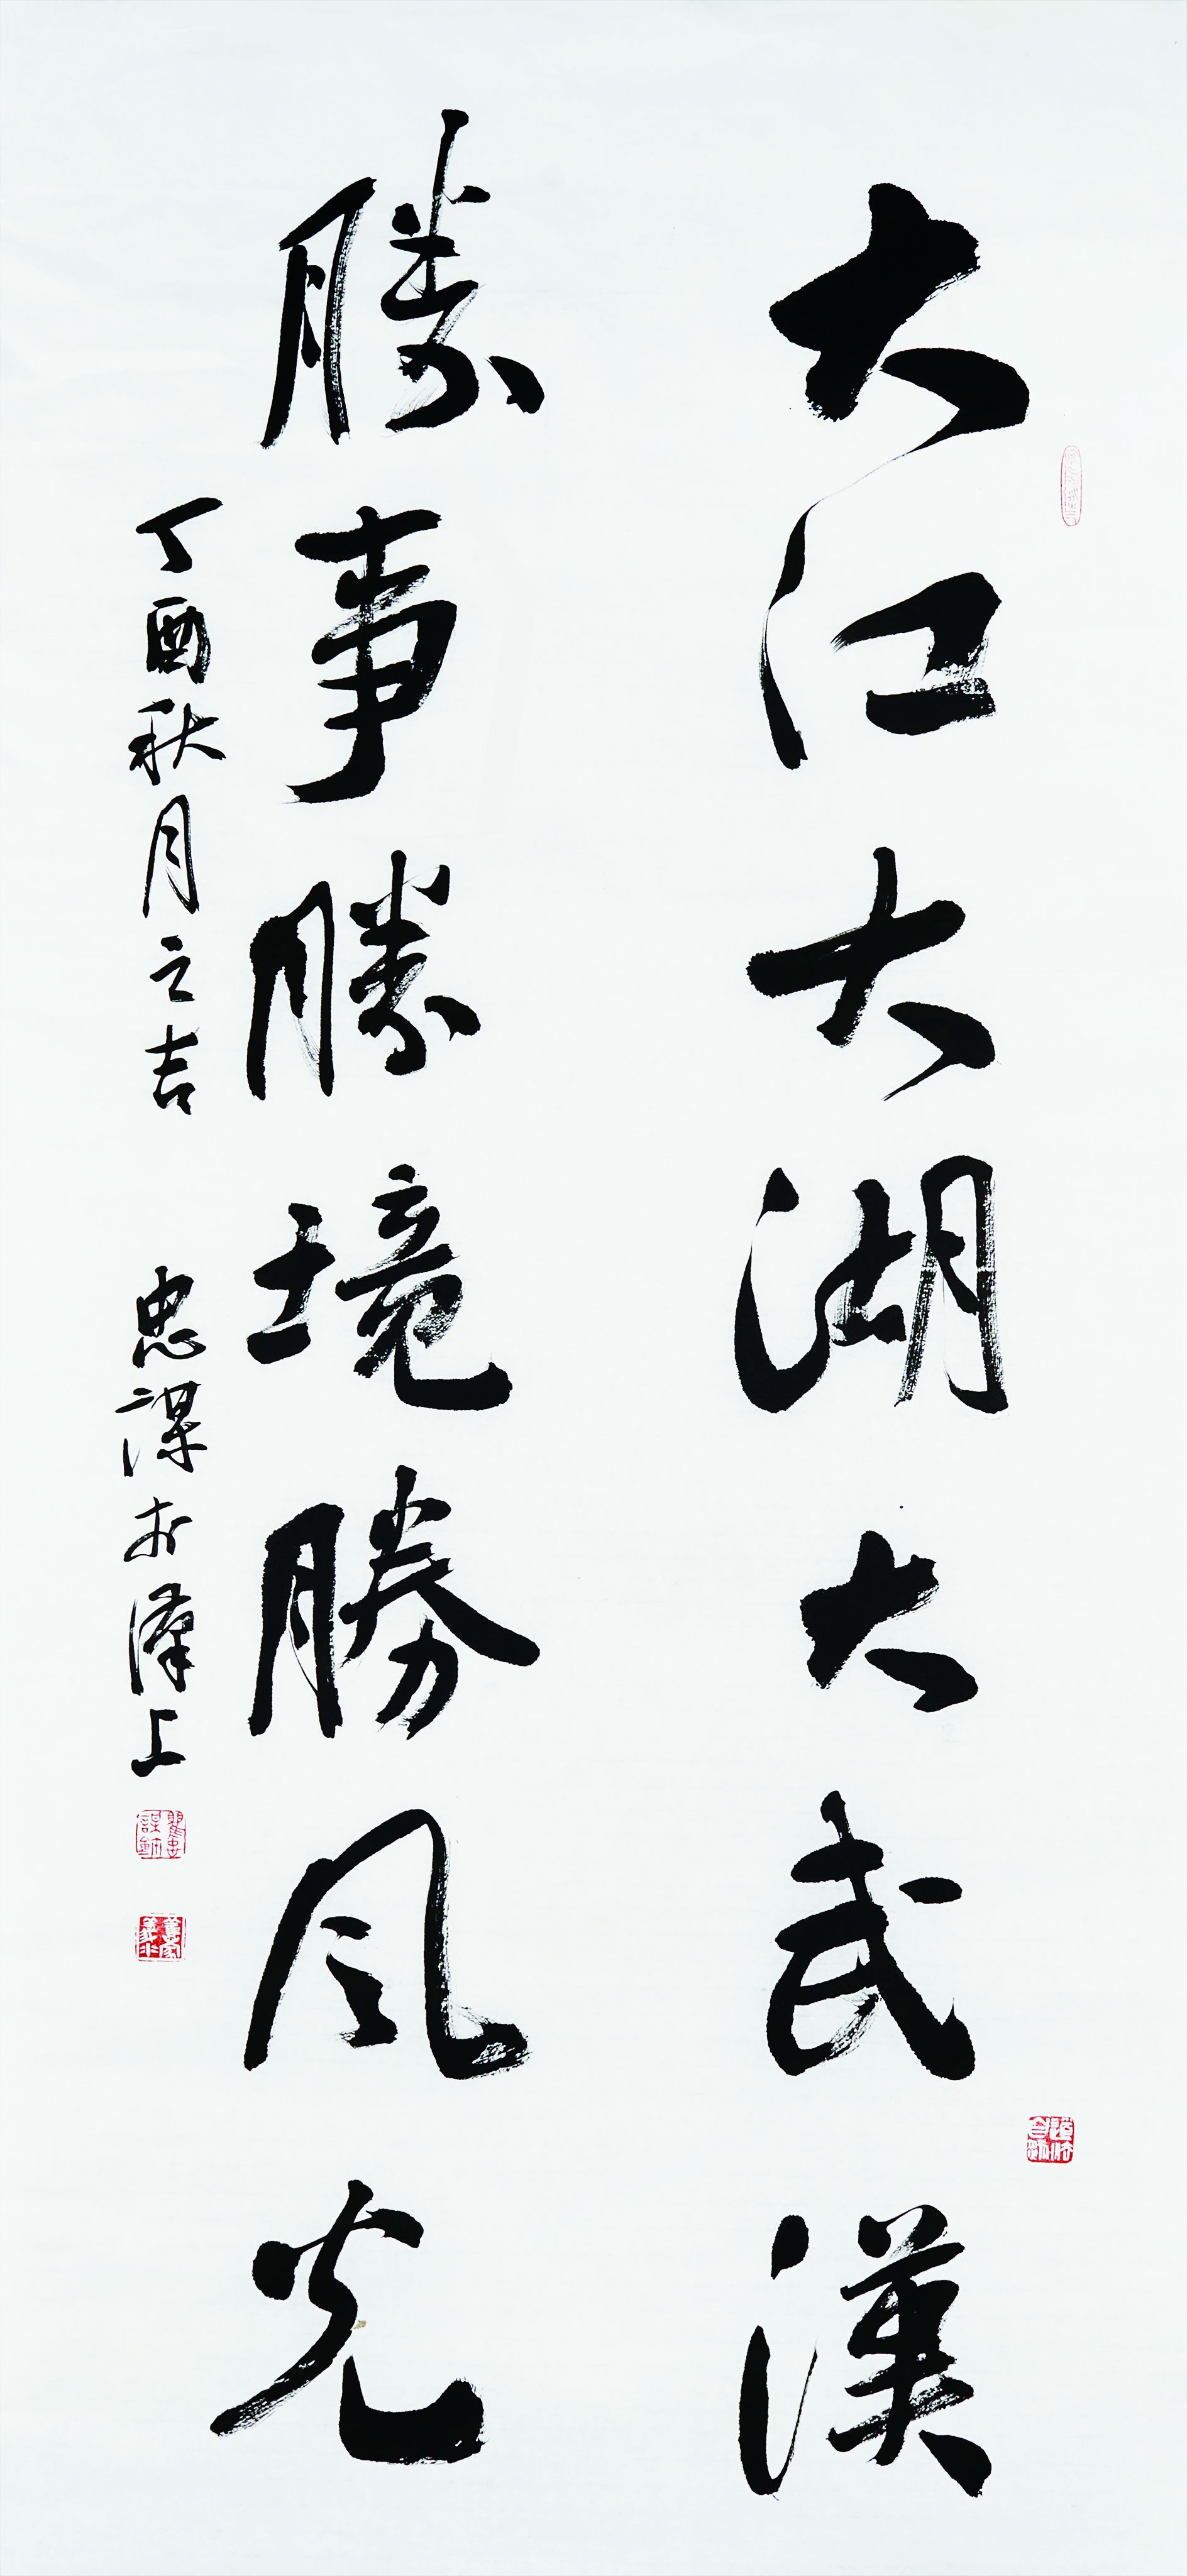 大江大湖大武漢
勝事勝境勝风光
丁酉秋月之吉 忠謀於漢上